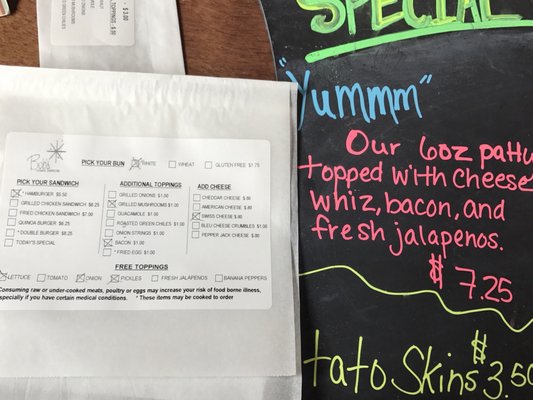 PICK YOUR BUN WHITE WHEAT GLUTEN FREE $1.75
PICK YOUR SANDWICH
* HAMBURGER $5.50
GRILLED CHICKEN SANDWICH $6.25
FRIED CHICKEN SANDWICH $7.00
QUINOA BURGER $6.25
* DOUBLE BURGER $8.25
TODAY'S SPECIAL
ADDITIONAL TOPPINGS
GRILLED ONIONS $1.00
GRILLED MUSHROOMS $1.00
GUACAMOLE $1.00
ROASTED GREEN CHILES $1.00
ONION STRINGS $1.00
BACON $1.00
* FRIED EGG $1.00
ADD CHEESE
CHEDDAR CHEESE $.80
AMERICAN CHEESE $.80
SWISS CHEESE $.80
BLEU CHEESE CRUMBLES $1.00
PEPPER JACK CHEESE $.80
FREE TOPPINGS
LETTUCE TOMATO ONION PICKLES FRESH JALAPENOS BANANA PEPPERS
Consuming raw or under-cooked meats, poultry or eggs may increase your risk of food borne illness,
especially if you have certain medical conditions. * These items may be cooked to order
SPECIAL
"Yummm"
Our 6oz patty
topped with Cheese
whiz, bacon, and
fresh jalapenos.
$7.25
tato Skins $3.50